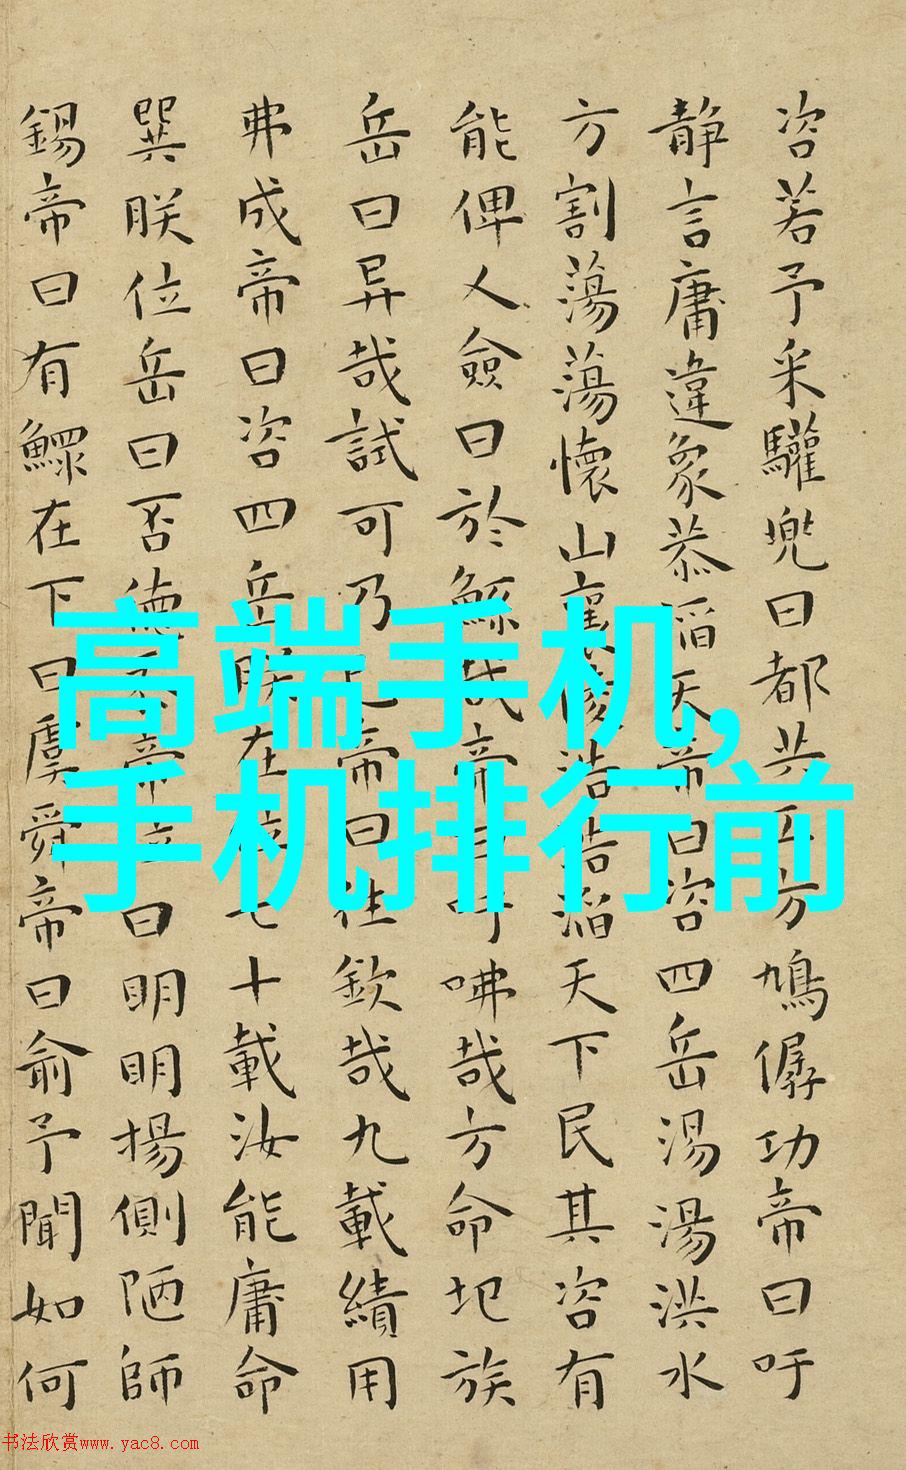 咨若予采驩兜曰都共工方鳩僝功帝曰吁
静言庸違象恭滔天帝曰咨四岳湯湯洪水
方割蕩蕩懷山襄陵浩浩滔天下民其咨有
能俾乂僉曰於鯀哉帝曰吁咈哉方命圮族
岳曰异哉試可乃已帝曰往欽哉九載績用
弗成帝曰咨四岳朕在位七十載汝能庸命
巽朕位岳曰否德忝帝位曰明明揚側陋師
錫帝曰有鰥在下曰虞舜帝曰俞予聞如何
高端手机,
手机排行前
书法欣赏www.yac8.com